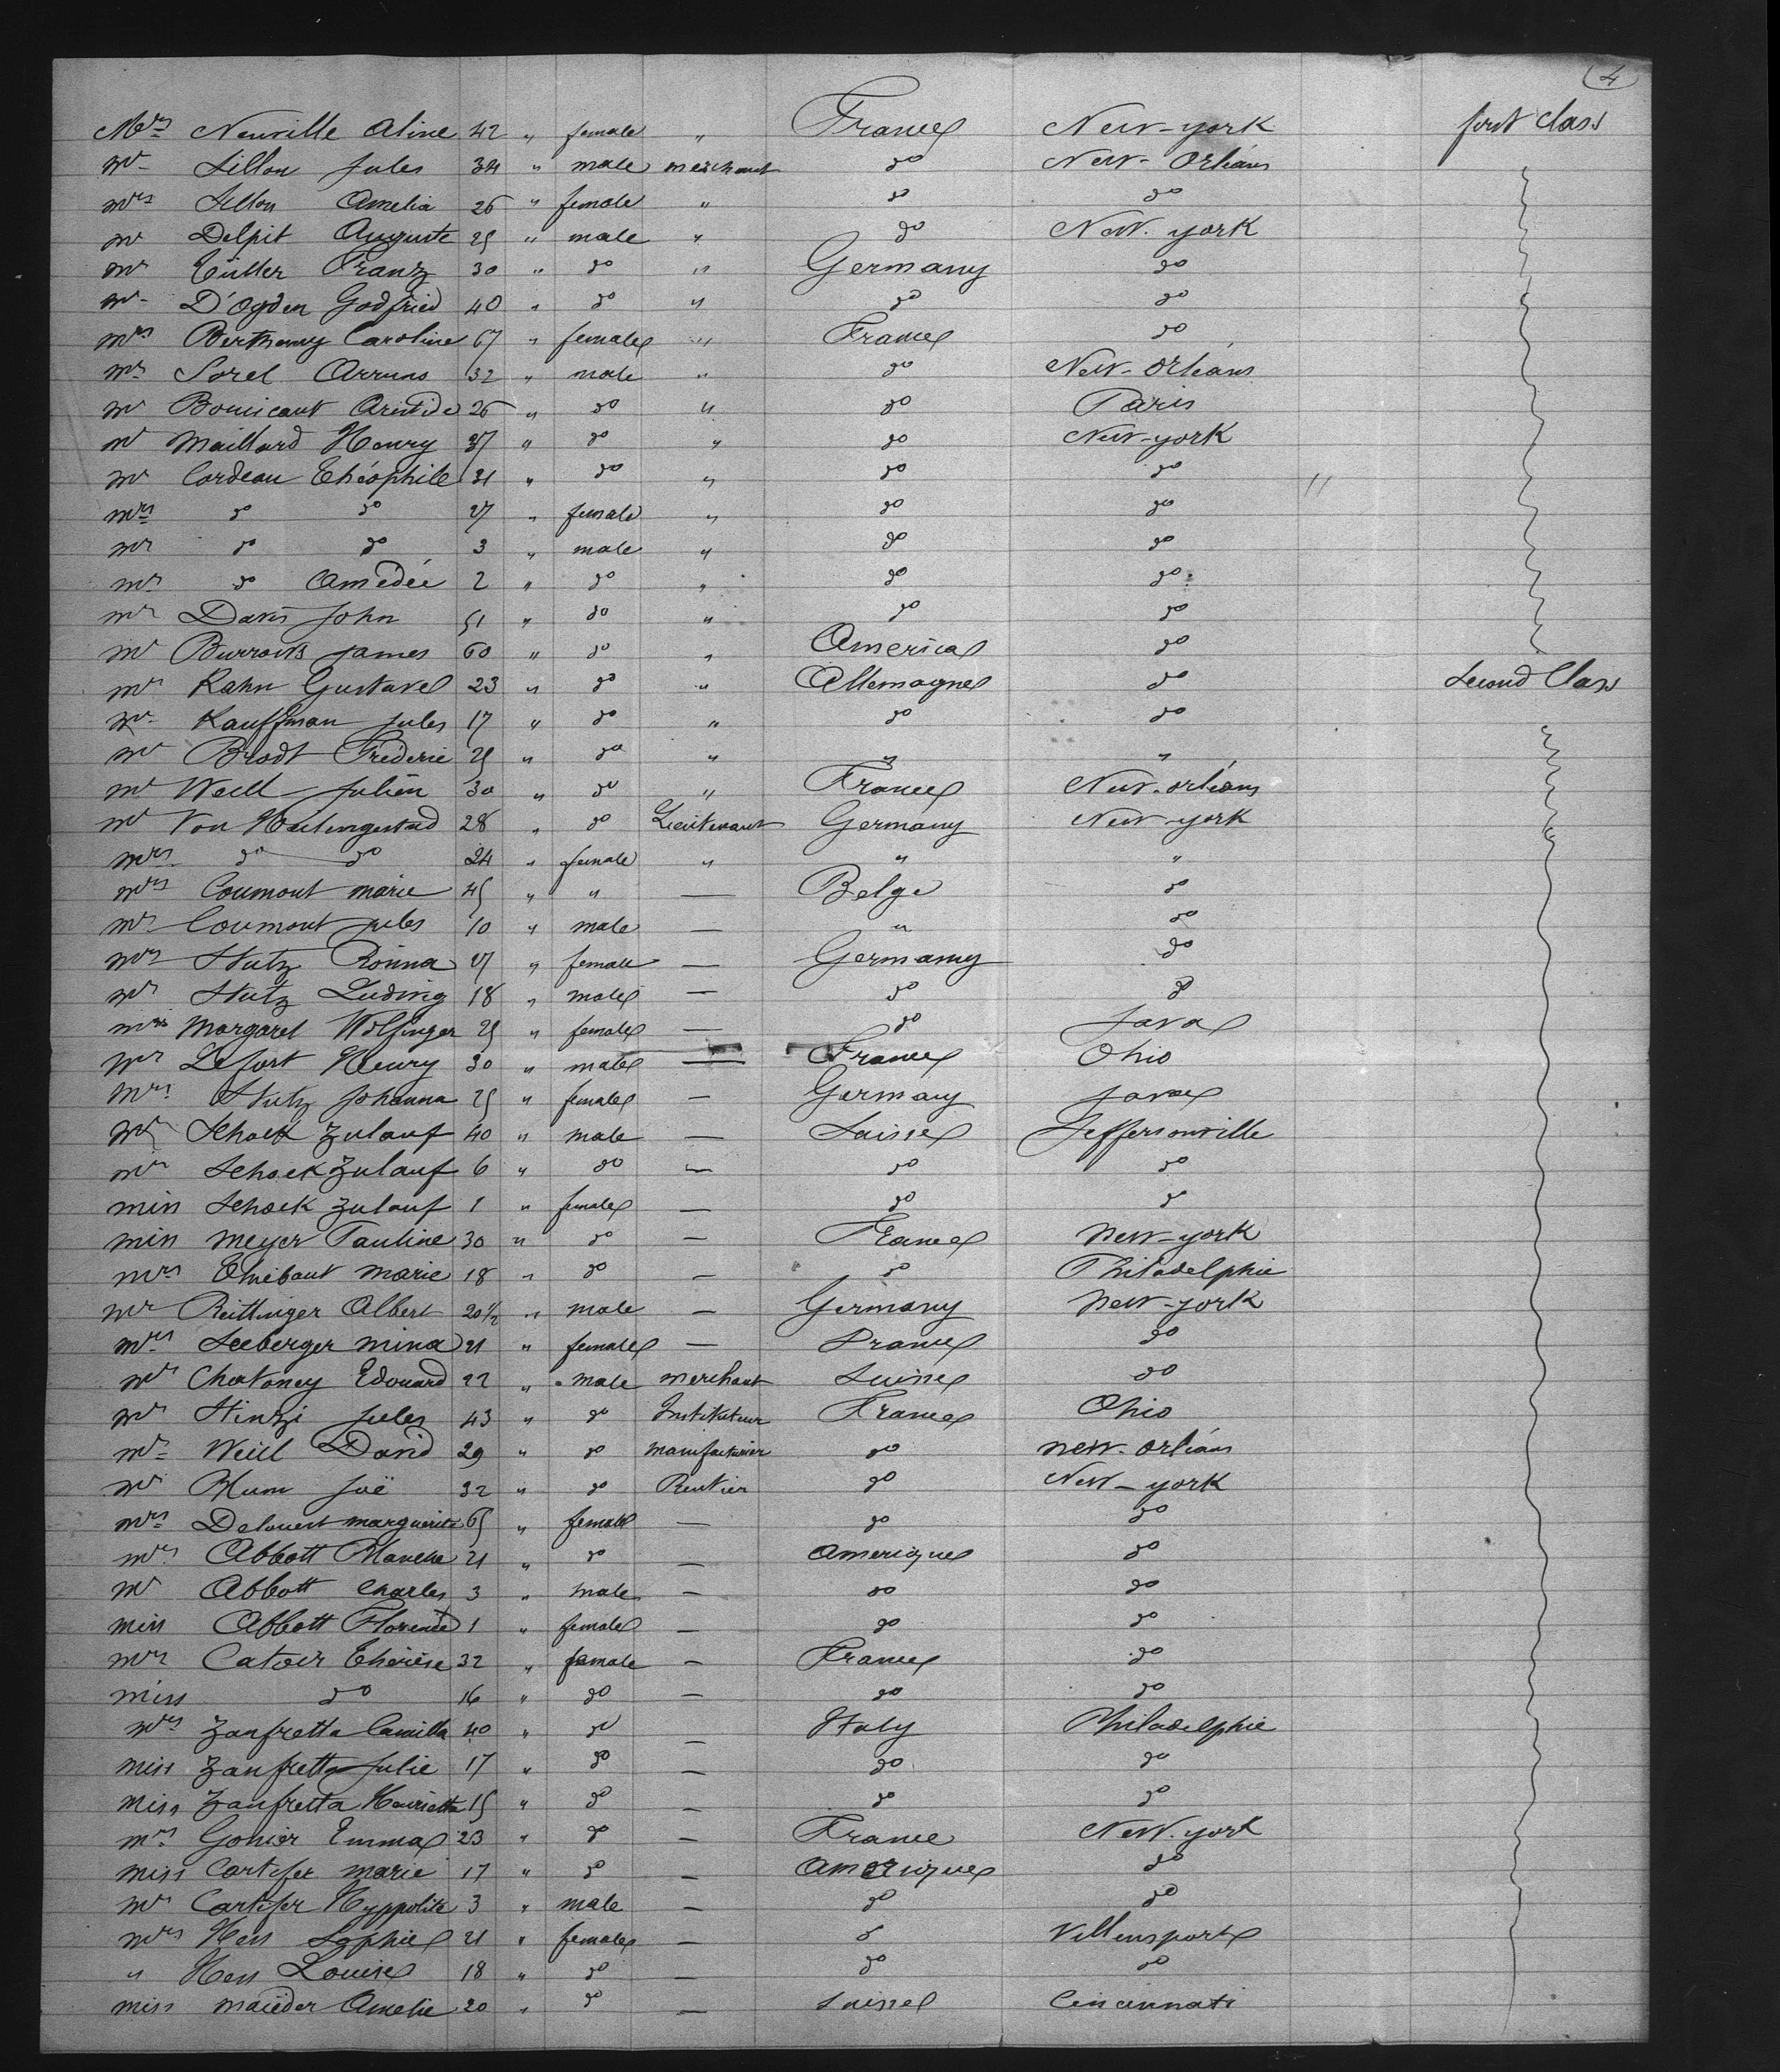 4
Mrs Neuville Aline 42 " female " France New-york first class
mr Sillon Jules 34 " male merchant do New-Orléans
mrs Sillon Amelia 26 " female " do do
mr Delpit Auguste 25 " male " do New-york
mr Franz 30 " do " Germany do
mr D'Ogden Godfried 40 " do " do do
mrs Berthemy Caroline 67 " female " France do
mr Sorel Arruns 32 " male " do New-Orléans
mr Boucicaut Aristide 26 " do " do Paris
mr Maillard Henry 37 " do " do New-york
mr Cordeau Théophile 31 " do " do do "
mrs do do 27 " female " do do
mr do do 3 " male " do do
mr do Amédée 2 " do " do do
mr Davis John 51 " do " do do
mr Burrows James 60 " do " America do
mr Kahn Gustave 23 " do " Allemagne do Second Class
mr Kauffman Jules 17 " do " do do
mr Brodt Fréderic 25 " do " " "
mr Weill Julien 30 " do " France New-orléans
mr Von 28 " do Lieutenant Germany New-york
mrs do do 24 " female " " "
mrs Coumont marie 45 " " — Belge do
mr Coumont jules 10 " male — " do
mrs Stutz Rosina 27 " female — Germany do
mr Stutz Ludwig 18 " male — do do
miss Margaret Wolfinger 25 " female — do Java
mr Lefort Henry 30 " male — France Ohio
mrs Stutz Johanna 25 " female — Germany Java
mr Schoek Zulauf 40 " male — Suisse Jeffersonville
mr Schoek Zulauf 6 " do — do do
miss Schoek Zulauf 1 " female — do do
miss Meyer Pauline 30 " do — France New-york
mrs Thiébaut Marie 18 " do — do Philadelphie
mr Reittinger Albert 20 1/2 " male — Germany New-york
mrs Seeberger mina 21 " female — France do
mr Chatoney Edouard 22 " male merchant Suisse do
mr Stinzi Jules 43 " do Instituteur France Ohio
mr Weill David 29 " do manufacturier do New-orléans
mr Blum 32 " do Rentier do New-york
mrs Delouest marguerite 65 " female — do do
mrs Abbott Blanche 21 " do — Amerique do
mr Abbott Charles 3 " male — do do
miss Abbott Florence 1 " female — do do
mrs Catoir Thérèse 32 " female — France do
miss do 16 " do — do do
mrs Zanfretta Camilla 40 " do — Italy Philadelphie
miss Zanfretta Julie 17 " do — do do
miss Zanfretta Henrietta 15 " do — do do
mrs Gonier Emma 23 " do — France New-york
miss marie 17 " do — Amerique do
mr Hyppolite 3 " male — do do
mrs Hess Sophie 21 " female — do
" Hess Louise 18 " do — do do
miss Maïeder Amelie 20 " do — Suisse Cincinnati